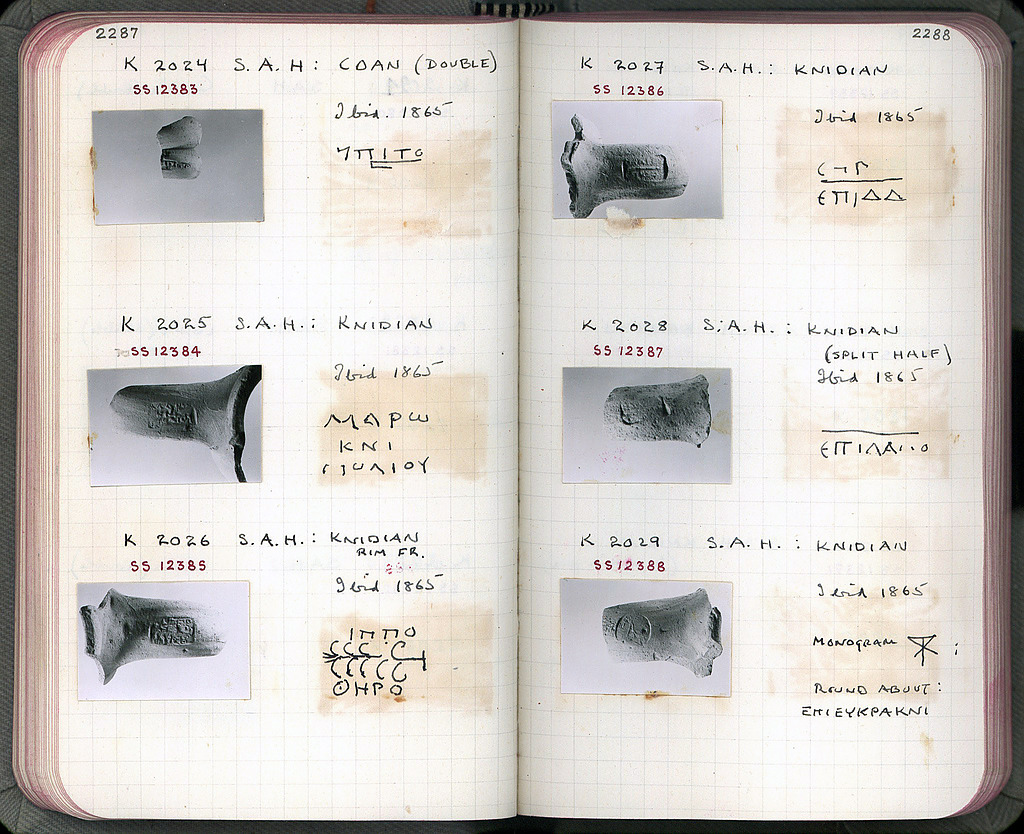 2287
K 2024 S.A.H: COAN (DOUBLE)
SS 12383
Ibid. 1865
ΥΠΙΤΟ
K 2025 S.A.H.: KNIDIAN
SS 12384
Ibid 1865
ΜΑΡΩ
ΚΝΙ
K 2026 S.A.H.: KNIDIAN
RIM FR.
SS 12385
Ibid 1865
ΙΠΠΟ
ΘΗΡΟ
2288
K 2027 S.A.H.: KNIDIAN
SS 12386
Ibid 1865
ΕΠΙΔΔ
K 2028 S.A.H.: KNIDIAN
(SPLIT HALF)
SS 12387
Ibid 1865
K 2029 S.A.H.: KNIDIAN
SS 12388
Ibid 1865
MONOGRAM :
ROUND ABOUT:
ΕΠΙΕΥΚΡΑΚΝΙ